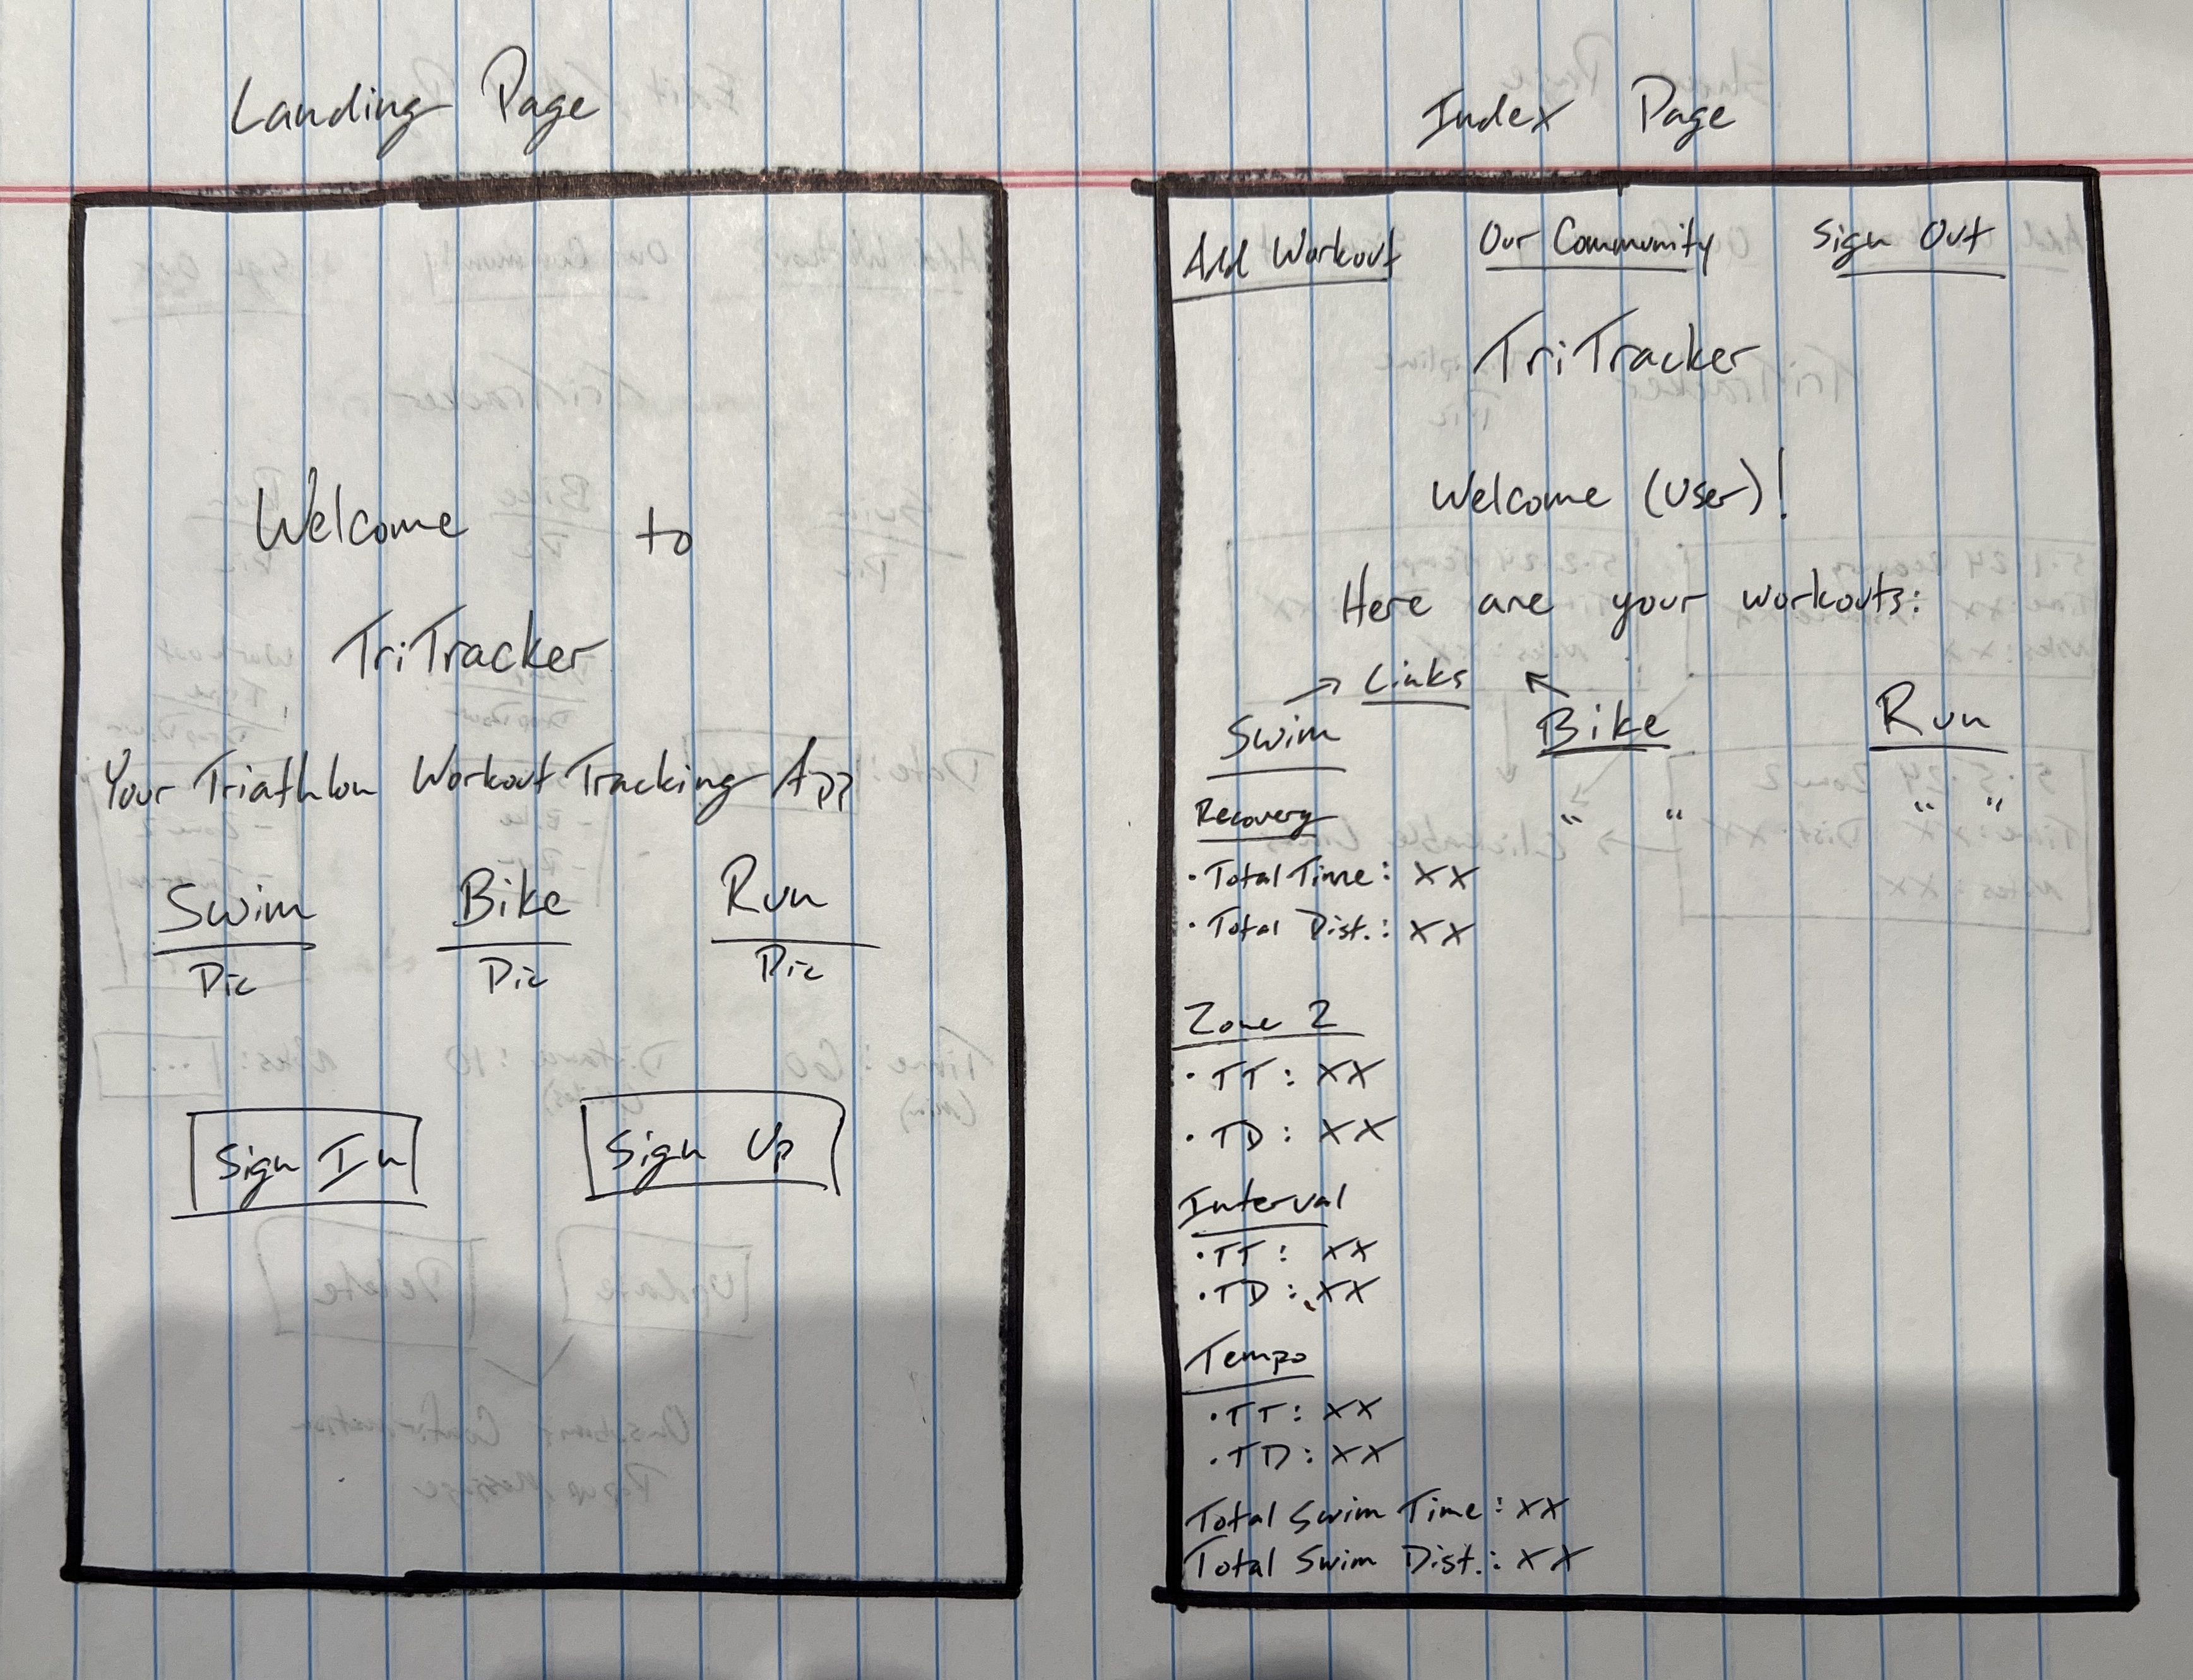 Landing Page
Welcome to
TriTracker
Your Triathlon Workout Tracking App
Swim Bike Run
Pic Pic Pic
Sign In Sign Up
Index Page
Add Workout Our Community Sign Out
TriTracker
Welcome (User)!
Here are your workouts:
→ Links ↖
Swim Bike Run
Recovery " " " "
• Total Time: XX
• Total Dist.: XX
Zone 2
• TT: XX
• TD: XX
Interval
• TT: XX
• TD: XX
Tempo
• TT: XX
• TD: XX
Total Swim Time: XX
Total Swim Dist.: XX